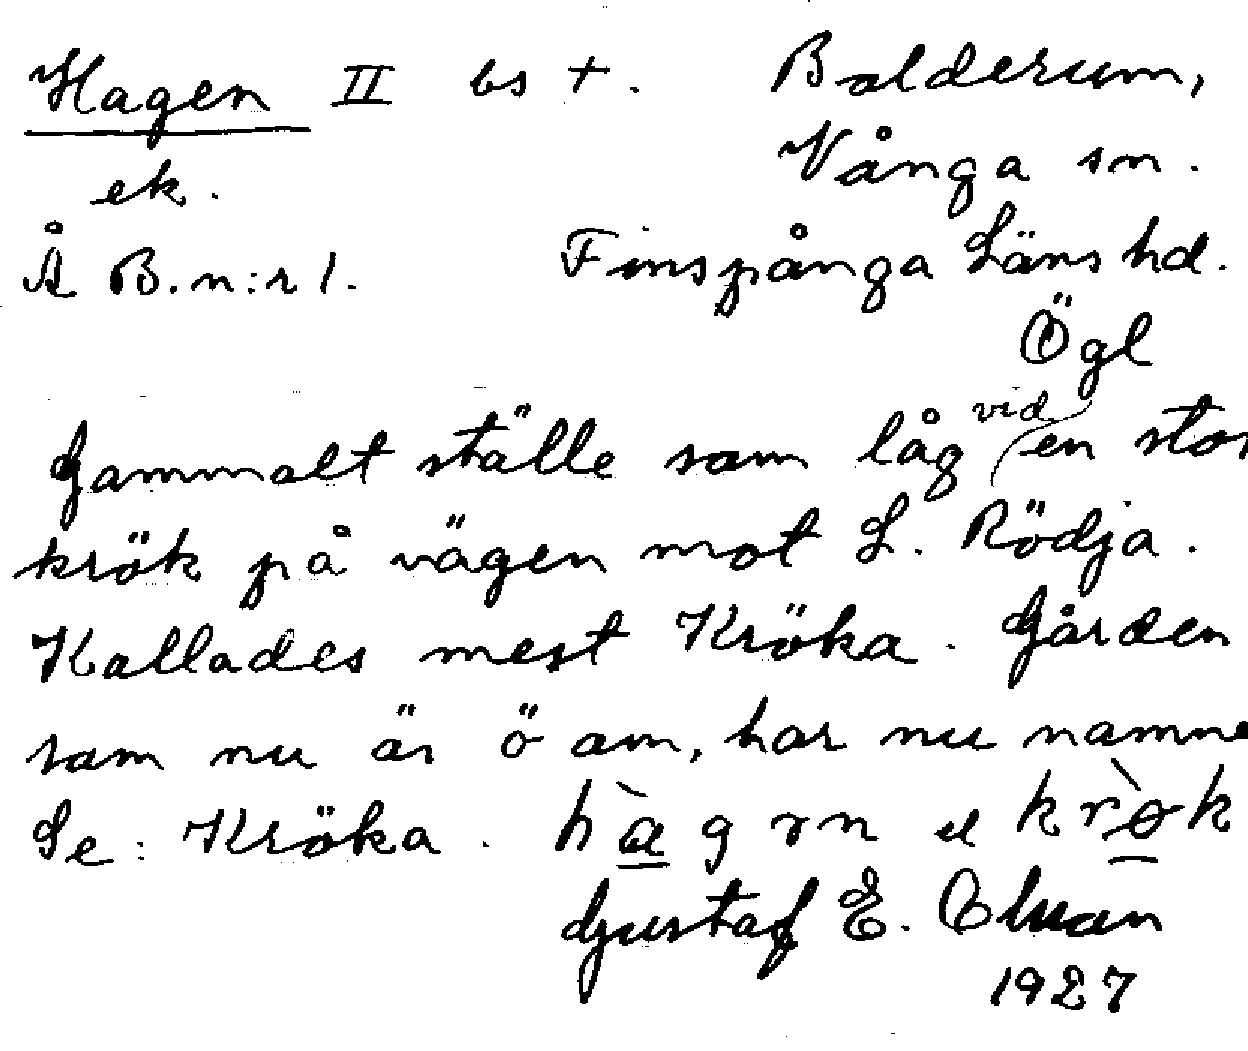 Hagen II bs +. Balderum,
ek. Vånga sn.
Å B. n:r 1. Finspånga Läns hd.
Ögl
Gammalt ställe som låg vid en stor
krök på vägen mot L. Rödja.
Kallades mest Kröka. Gården
som nu är ö am, har nu namne
Se: Kröka. hàgɤn el kròk
Gustaf E.
1927